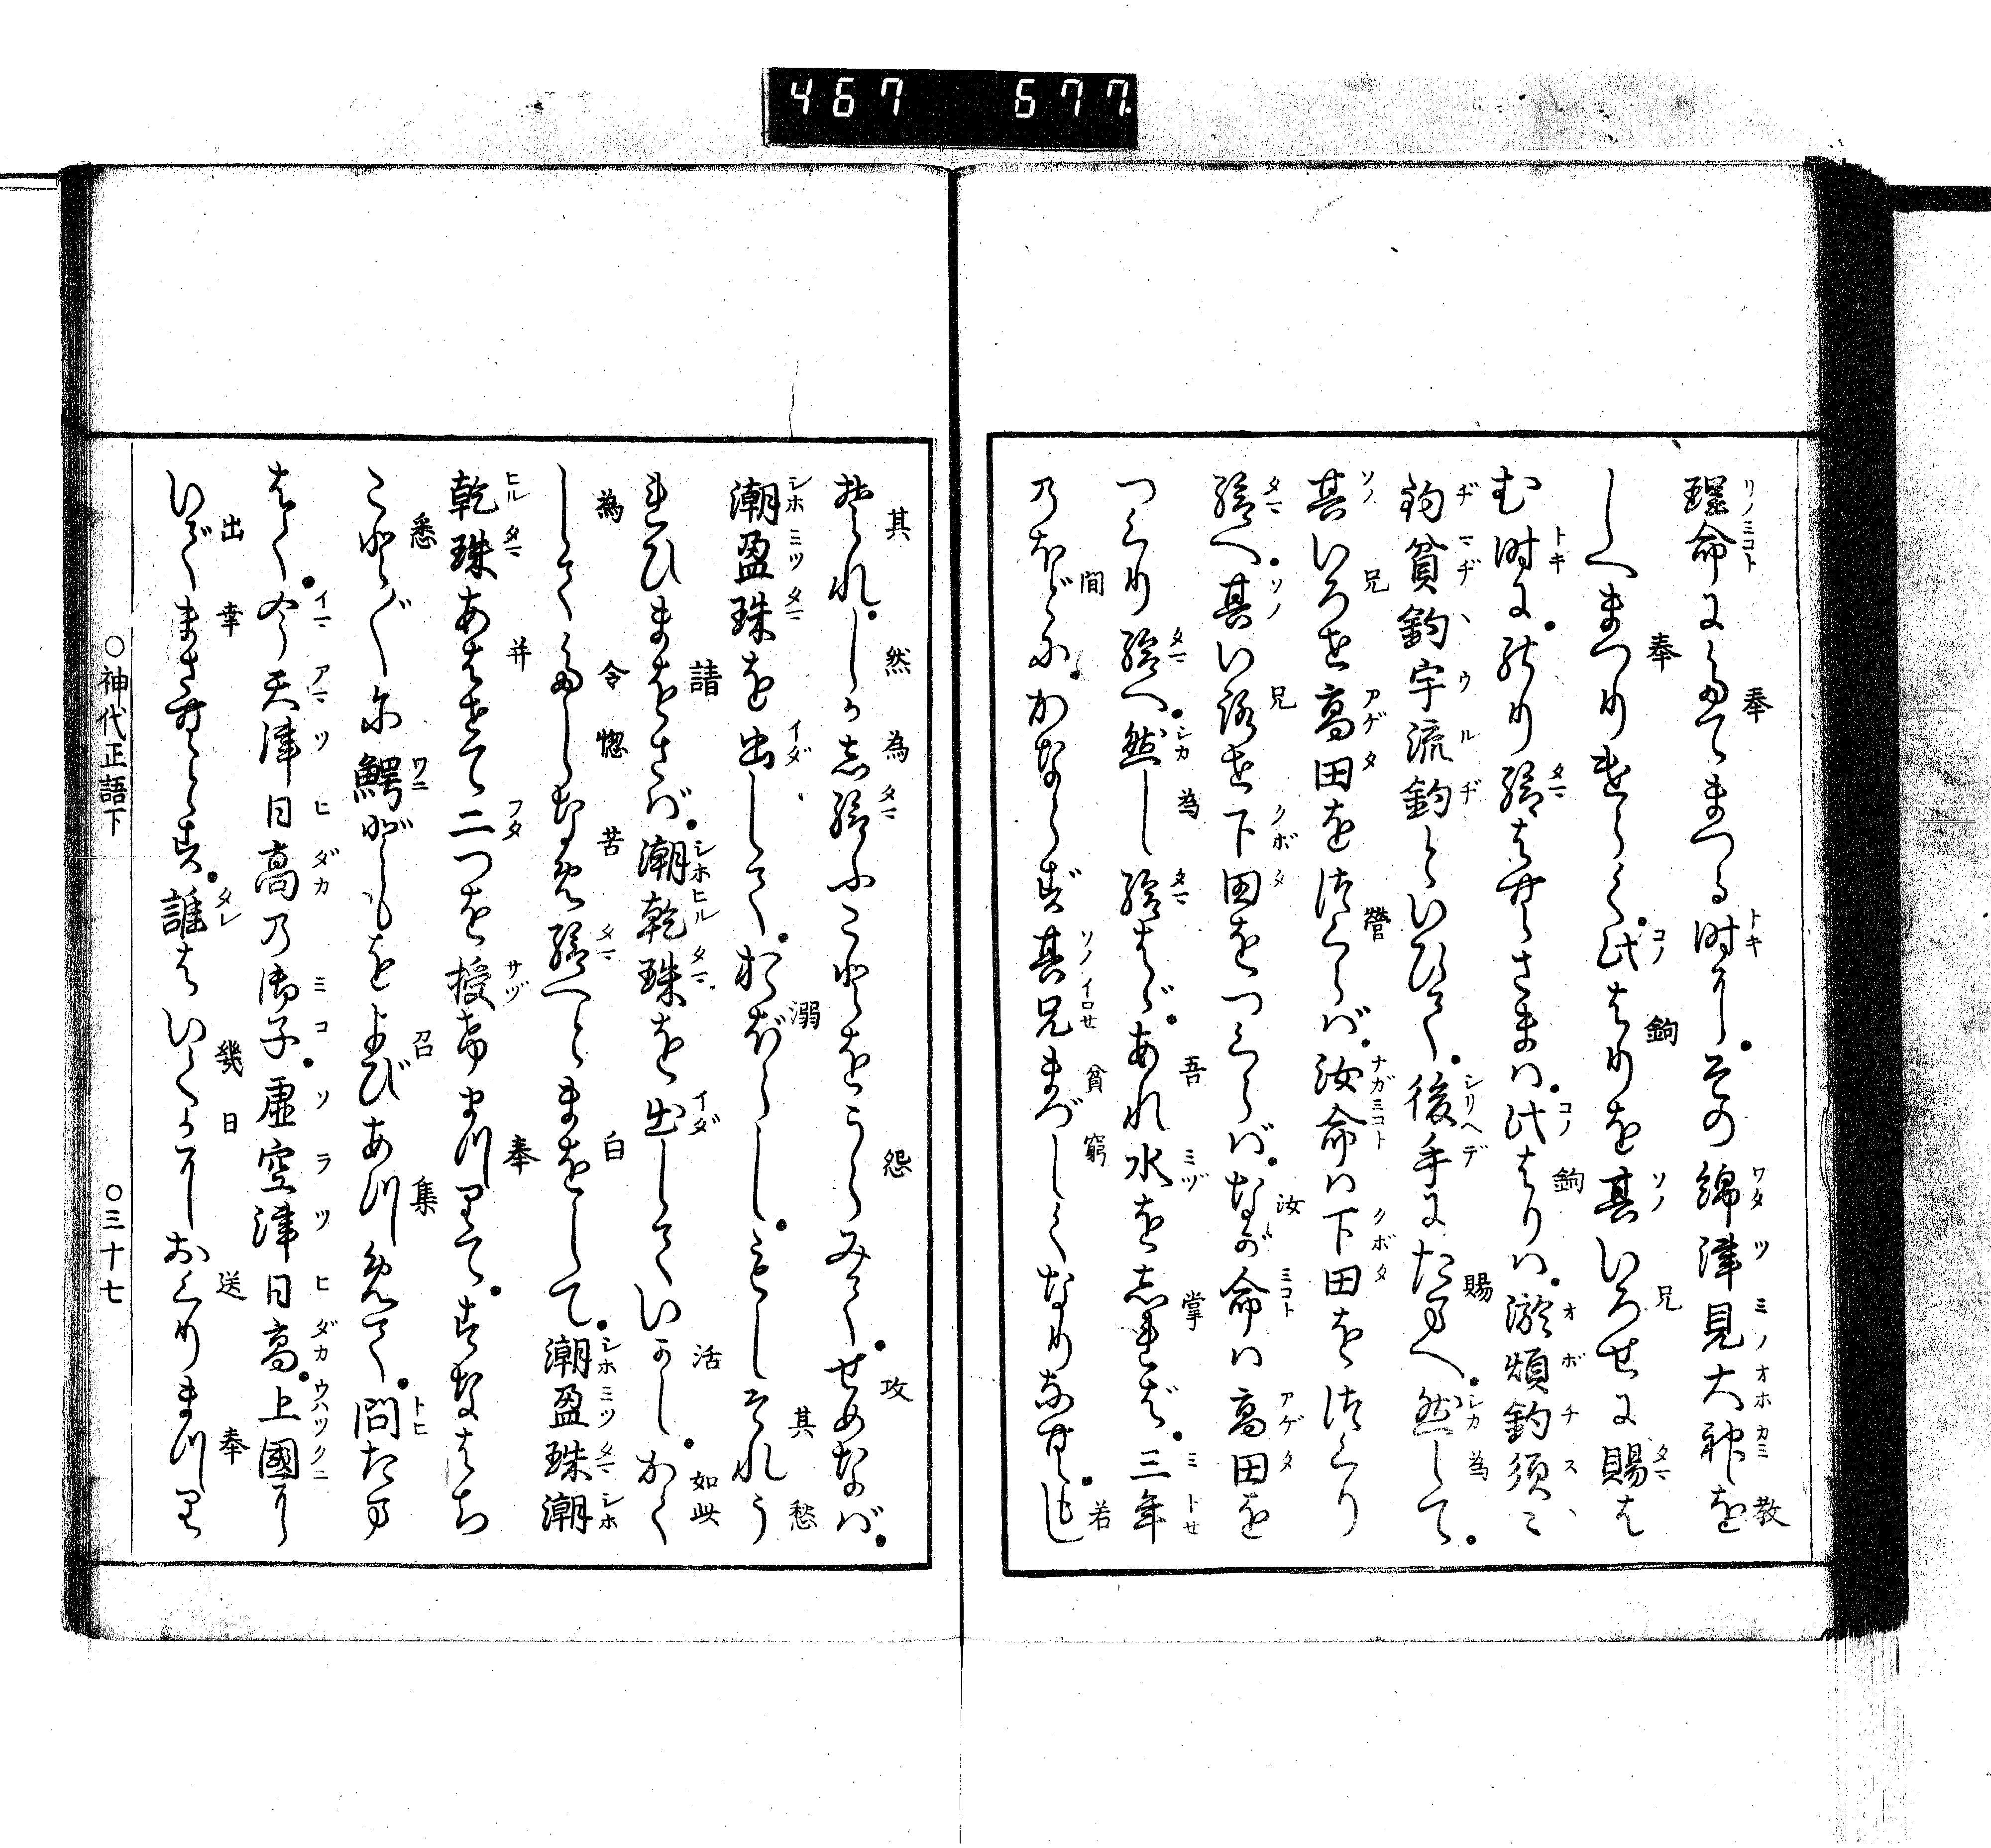 467 677
理命にたてまつる時に。その綿津見大神を
しへまつりけらく。此はりを其いろせに賜は
む時に。のり給はむさまは。此はりは。淤煩鉤須々
鉤貧鉤宇流鉤といひて。後手にたまへ。然して。
其いろせ高田をつくらば。汝命は下田をつくり
給へ。其いろせ下田をつくらば。なが命は高田を
つくり給へ。然し給はゞ。あれ水をしれば。三年
のほどに。かならず其兄まづしくなりなむ。もし
それ。しか為給ふことをうらみて。せめなば。
潮盈珠を出して。おぼらし。もしそれう
れひまをさば。潮乾珠を出していかし。かく
してたしなめ給へとまをして。潮盈珠潮
乾珠あはせて二つを授まつりて。すなはち
ことごとに鰐どもをよびあつめて。問たま
はく。今天津日高の御子。虚空津日高。上國に
いでまさむとす。誰はいくかにおくりまつり
○神代正語下 ○三十七